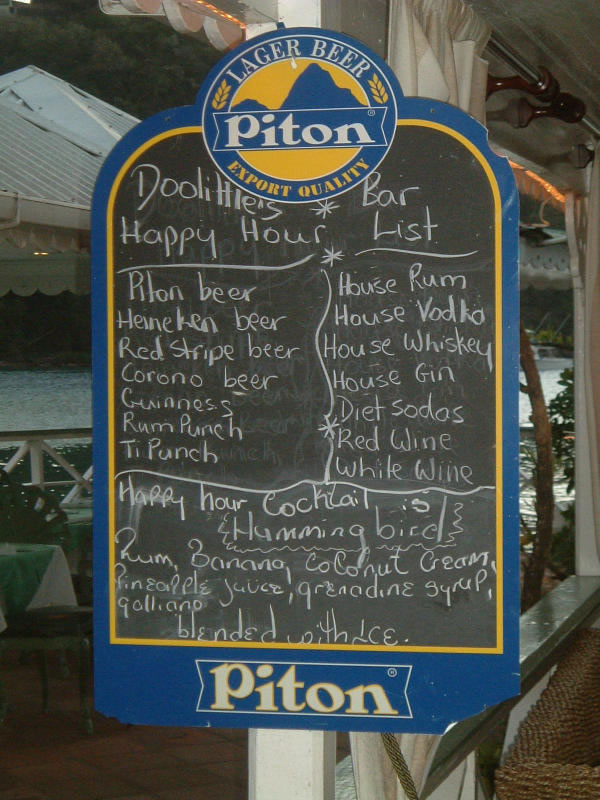 LAGER BEER
Piton®
EXPORT QUALITY
Doolittle's * Bar
Happy Hour List
Piton beer
Heineken beer
Red Stripe beer
Corono beer
Guinness
Rum Punch
Ti Punch
House Rum
House Vodka
House Whiskey
House Gin
Diet Sodas
Red Wine
White Wine
Happy hour Cocktail is
{Humming bird}
Rum, Banana, Coconut Cream,
Pineapple juice, grenadine syrup,
galliano
blended with Ice.
Piton®